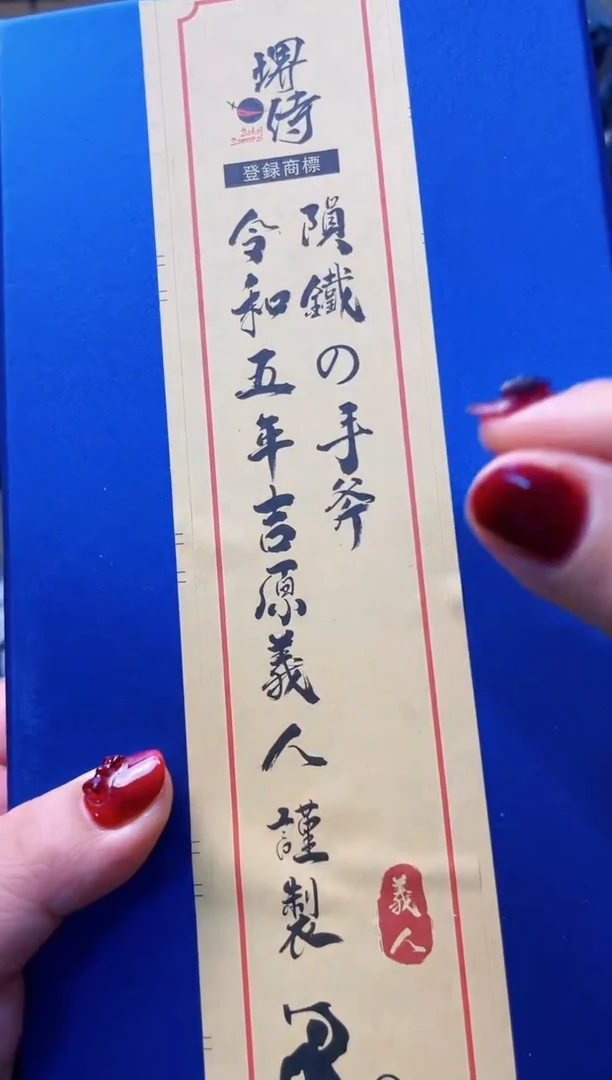 堺
侍
Sakai
Samurai
登録商標
隕鐵の手斧
令和五年吉原義人謹製
義人